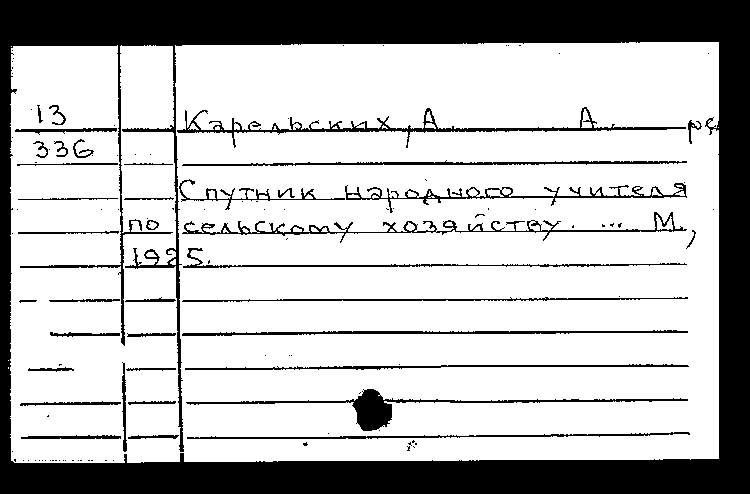 13
Карельских, А. А. ре
336
Спутник народного учителя
по сельскому хозяйству. ... М.,
1925.